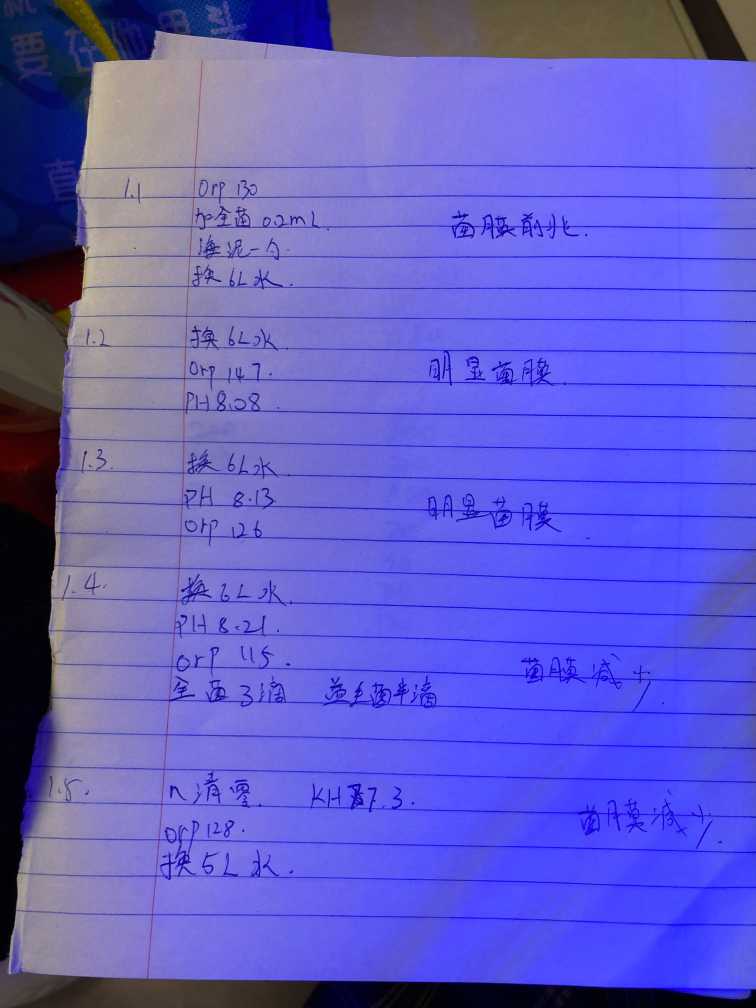 要在他里
直
1.1 Orp 130
加全菌 0.2mL. 菌膜前兆.
海泥一勺.
换6L水.
1.2 换6L水.
Orp 147. 明显菌膜.
PH 8.08.
1.3. 换6L水.
PH 8.13 明显菌膜.
Orp 126
1.4. 换6L水.
PH 8.21.
orP 115. 菌膜减少.
全菌3滴 益生菌半滴
1.5. n清零. KH 7.3. 菌膜减少.
orP 128.
换5L水.